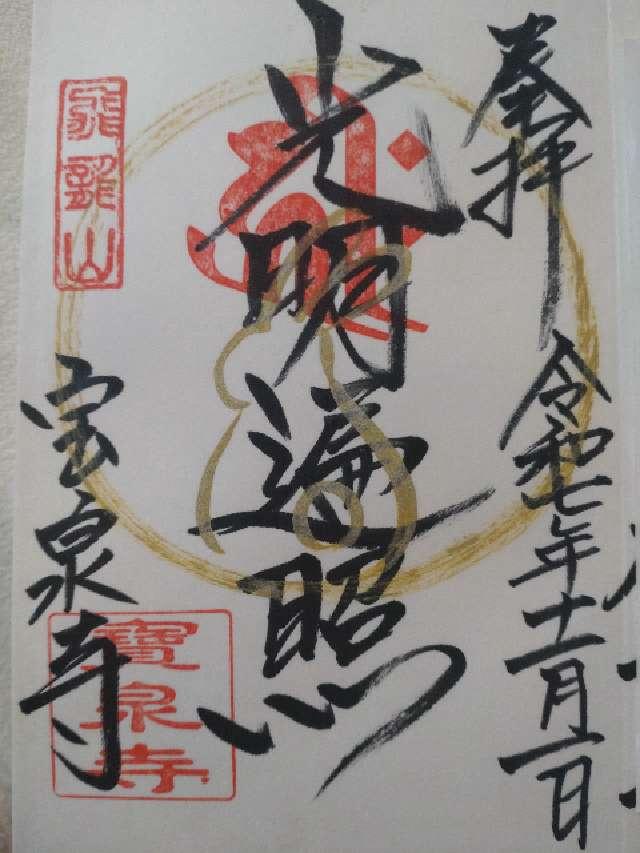 奉拝
令和七年十一月二日
光明遍照
飛龍山
宝泉寺
寶泉寺